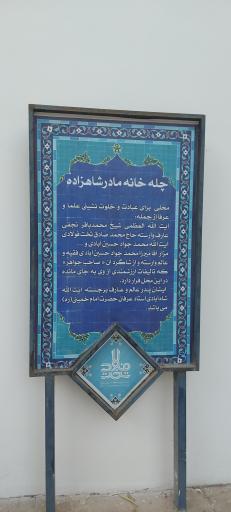 چله خانه مادرشاهزاده
محلی برای عبادت و خلوت نشینی علما و
عرفا از جمله:
آیت الله العظمی شیخ محمدباقر نجفی
عارف وارسته حاج محمد صادق تخت فولادی
آیت الله محمد جواد حسین آبادی و...
مزار آقا میرزا محمد جواد حسین آبادی فقیه و
عالم وارسته و از شاگردان » صاحب جواهر«
که تالیفات ارزشمندی از وی به جای مانده
در این محل قرار دارد.
ایشان پدر عالم و عارف برجسته آیت الله
شاه آبادی استاد عرفان حضرت امام خمینی(ره)
می باشد